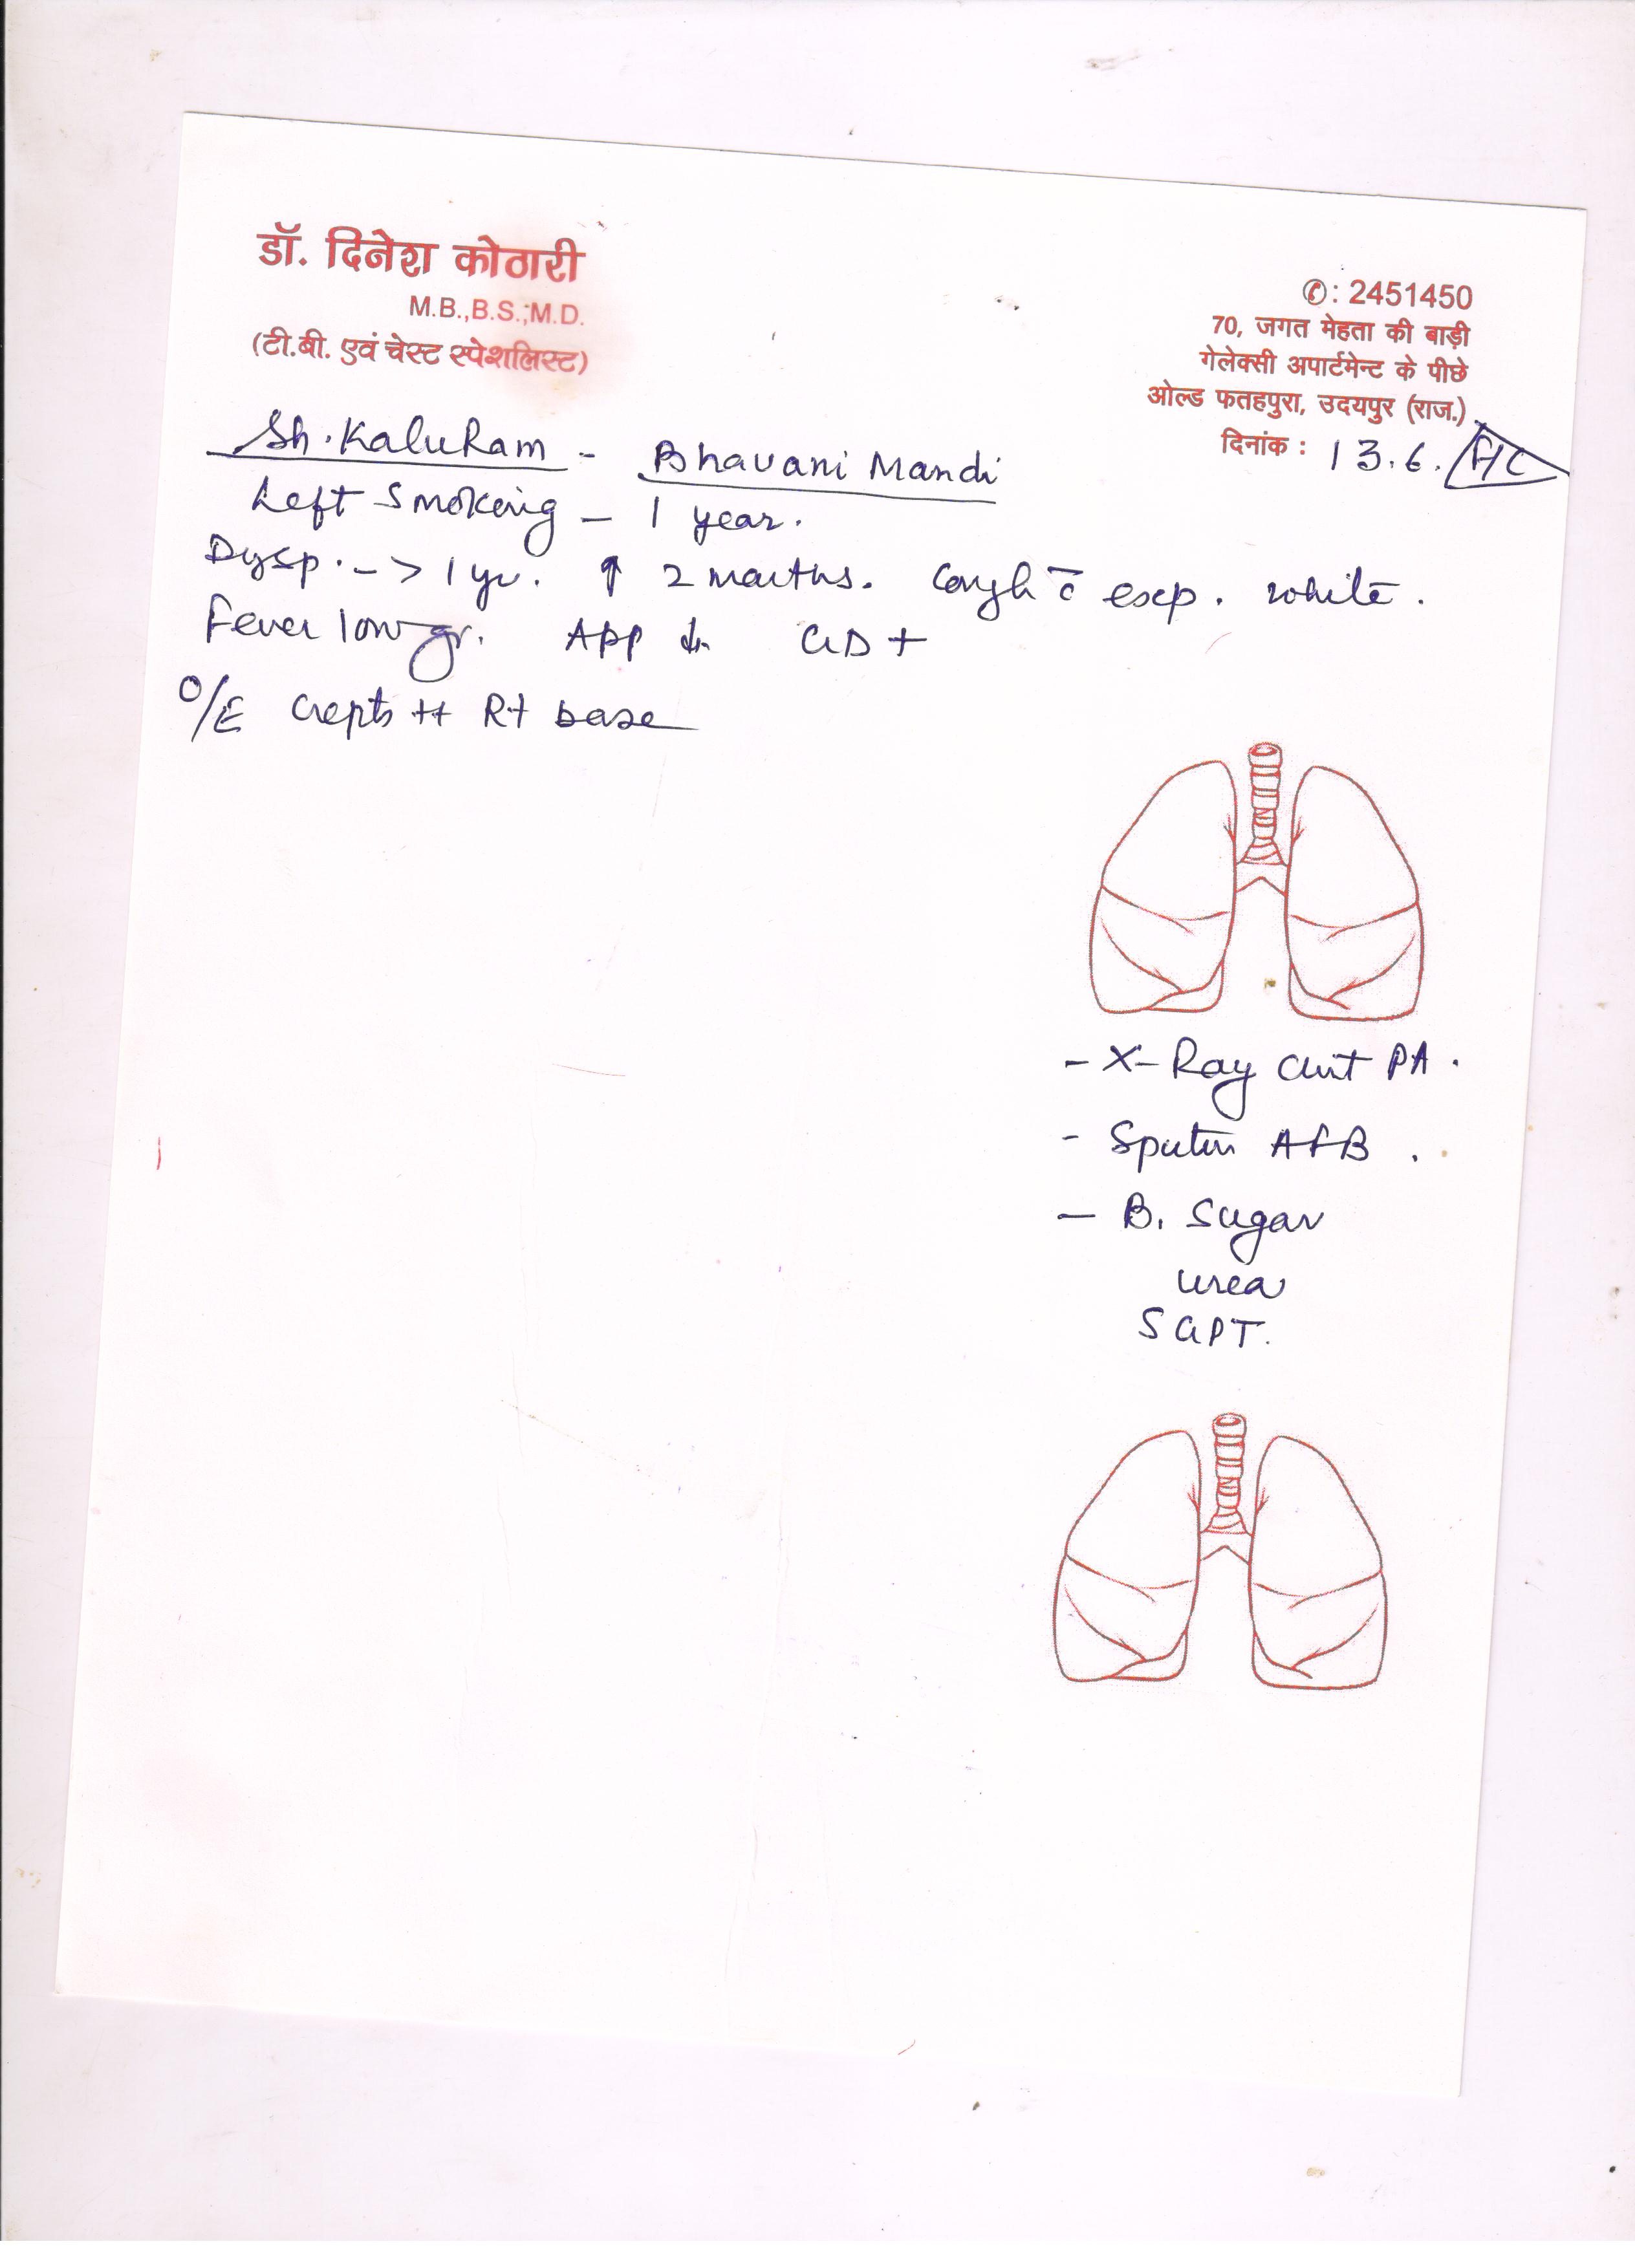 डॉ. दिनेश कोठारी
M.B.,B.S.;M.D.
(टी.बी. एवं चेस्ट स्पेशलिस्ट)
✆: 2451450
70, जगत मेहता की बाड़ी
गेलेक्सी अपार्टमेन्ट के पीछे
ओल्ड फतहपुरा, उदयपुर (राज.)
दिनांक : 13.6.
Sh. KaluRam - Bhavani Mandi
Left Smoking - 1 year.
Dysp. -> 1 yr. ↑ 2 months. Cough c̄ exp. white.
Fever low gr. App ↓ GD +
O/E Crepts ++ Rt base
- X-Ray Chest PA.
- Sputum AFB.
- B. Sugar
urea
SGPT.